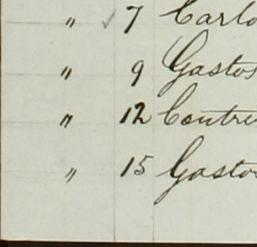 " ✓ 7 Carlo
" 9 Gastos
" 12 Contre
" 15 Gasto